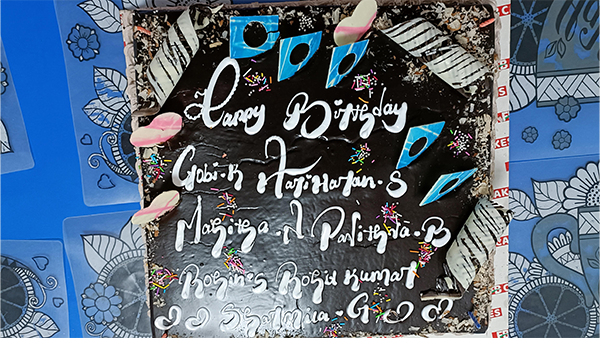 Happy Birthday
Gobi.K Hariharan.S
Mathitha.N Pavithra.B
Rohines Rohit kumar
Sharmila.G